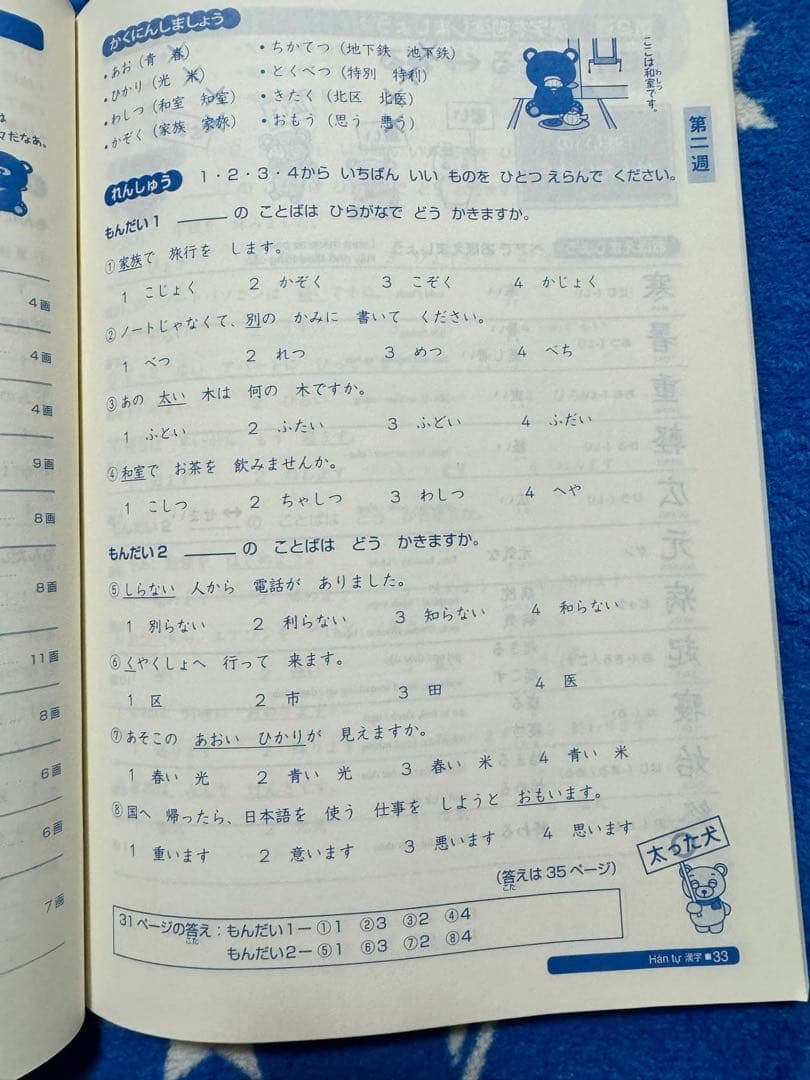 かくにんしましょう
・あお（青　春）
・ひかり（光　米）
・わしつ（和室　知室）
・かぞく（家族　家旅）
・ちかてつ（地下鉄　池下鉄）
・とくべつ（特別　特利）
・きたく（北区　北医）
・おもう（思う　悪う）
ここは和室です。
わしつ
第二週
れんしゅう　1・2・3・4から　いちばん　いい　ものを　ひとつ　えらんで　ください。
もんだい1　＿＿＿の　ことばは　ひらがなで　どう　かきますか。
①家族で　旅行を　します。
1　こじょく　2　かぞく　3　こぞく　4　かじょく
②ノートじゃなくて、別の　かみに　書いて　ください。
1　べつ　2　れつ　3　めつ　4　べち
③あの　太い　木は　何の　木ですか。
1　ふとい　2　ふたい　3　ふどい　4　ふだい
④和室で　お茶を　飲みませんか。
1　こしつ　2　ちゃしつ　3　わしつ　4　へや
もんだい2　＿＿＿の　ことばは　どう　かきますか。
⑤しらない　人から　電話が　ありました。
1　別らない　2　利らない　3　知らない　4　和らない
⑥くやくしょへ　行って　来ます。
1　区　2　市　3　田　4　医
⑦あそこの　あおい　ひかりが　見えますか。
1　春い　光　2　青い　光　3　春い　米　4　青い　米
⑧国へ　帰ったら、日本語を　使う　仕事を　しようと　おもいます。
1　重います　2　意います　3　悪います　4　思います
太った犬
（答えは35ページ）
こた
31ページの答え：もんだい1－①1　②3　③2　④4
こた
もんだい2－⑤1　⑥3　⑦2　⑧4
Hán tự 漢字 ■33
マだなあ。
4画
4画
4画
9画
8画
8画
11画
8画
6画
6画
7画